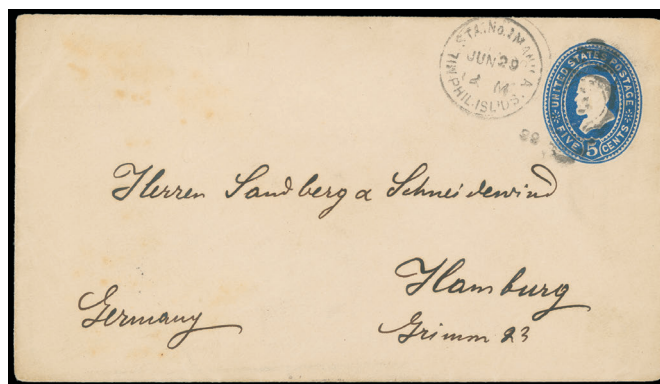 MIL. STA. No. 1 MANILA
JUN 29
PHIL. ISL'DS.
99
UNITED STATES POSTAGE
FIVE 5 CENTS
Herren Sandberg & Schneidewind
Hamburg
Germany
Grimm 23